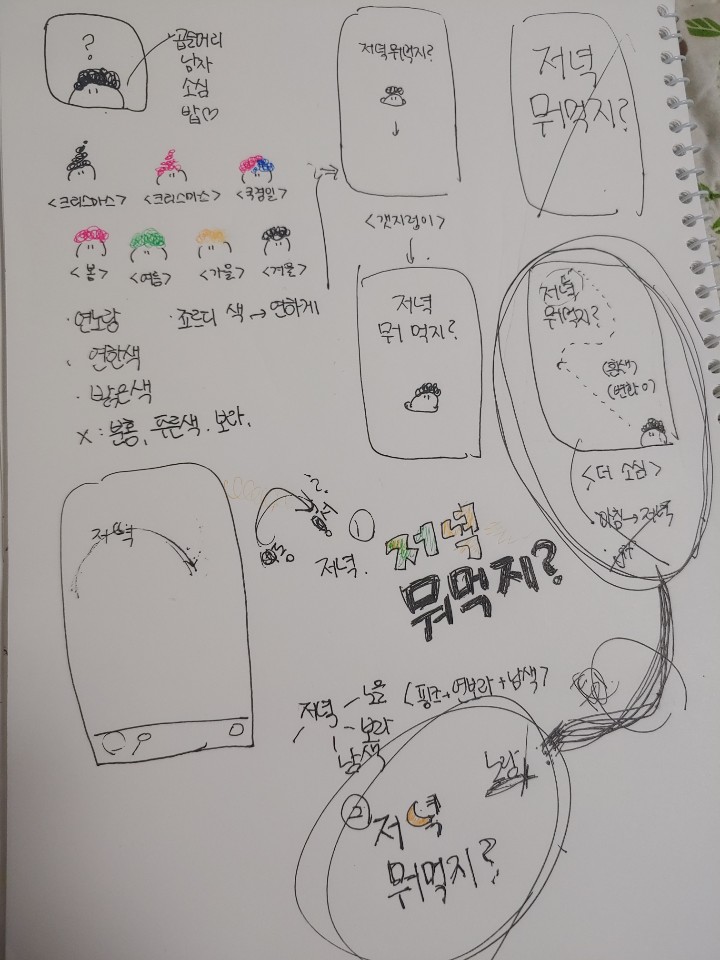 ?
곱슬머리
남자
소심
밥♡
<크리스마스>
<크리스마스>
<국경일>
<봄>
<여름>
<가을>
<겨울>
· 연노랑
· 연한색
· 밝은색
x : 분홍, 푸른색. 보라.
· 죠르디 색 → 연하게
저녁 뭐먹지?
<갯지렁이>
저녁
뭐 먹지?
저녁
뭐먹지?
저녁
뭐먹지?
(흰색)
<더 소심>
아침→저녁
저녁
①
저녁.
저녁
뭐먹지?
저녁
노을
보라
남색
<핑크+연보라+남색>
노랑
②
저녁
뭐먹지?